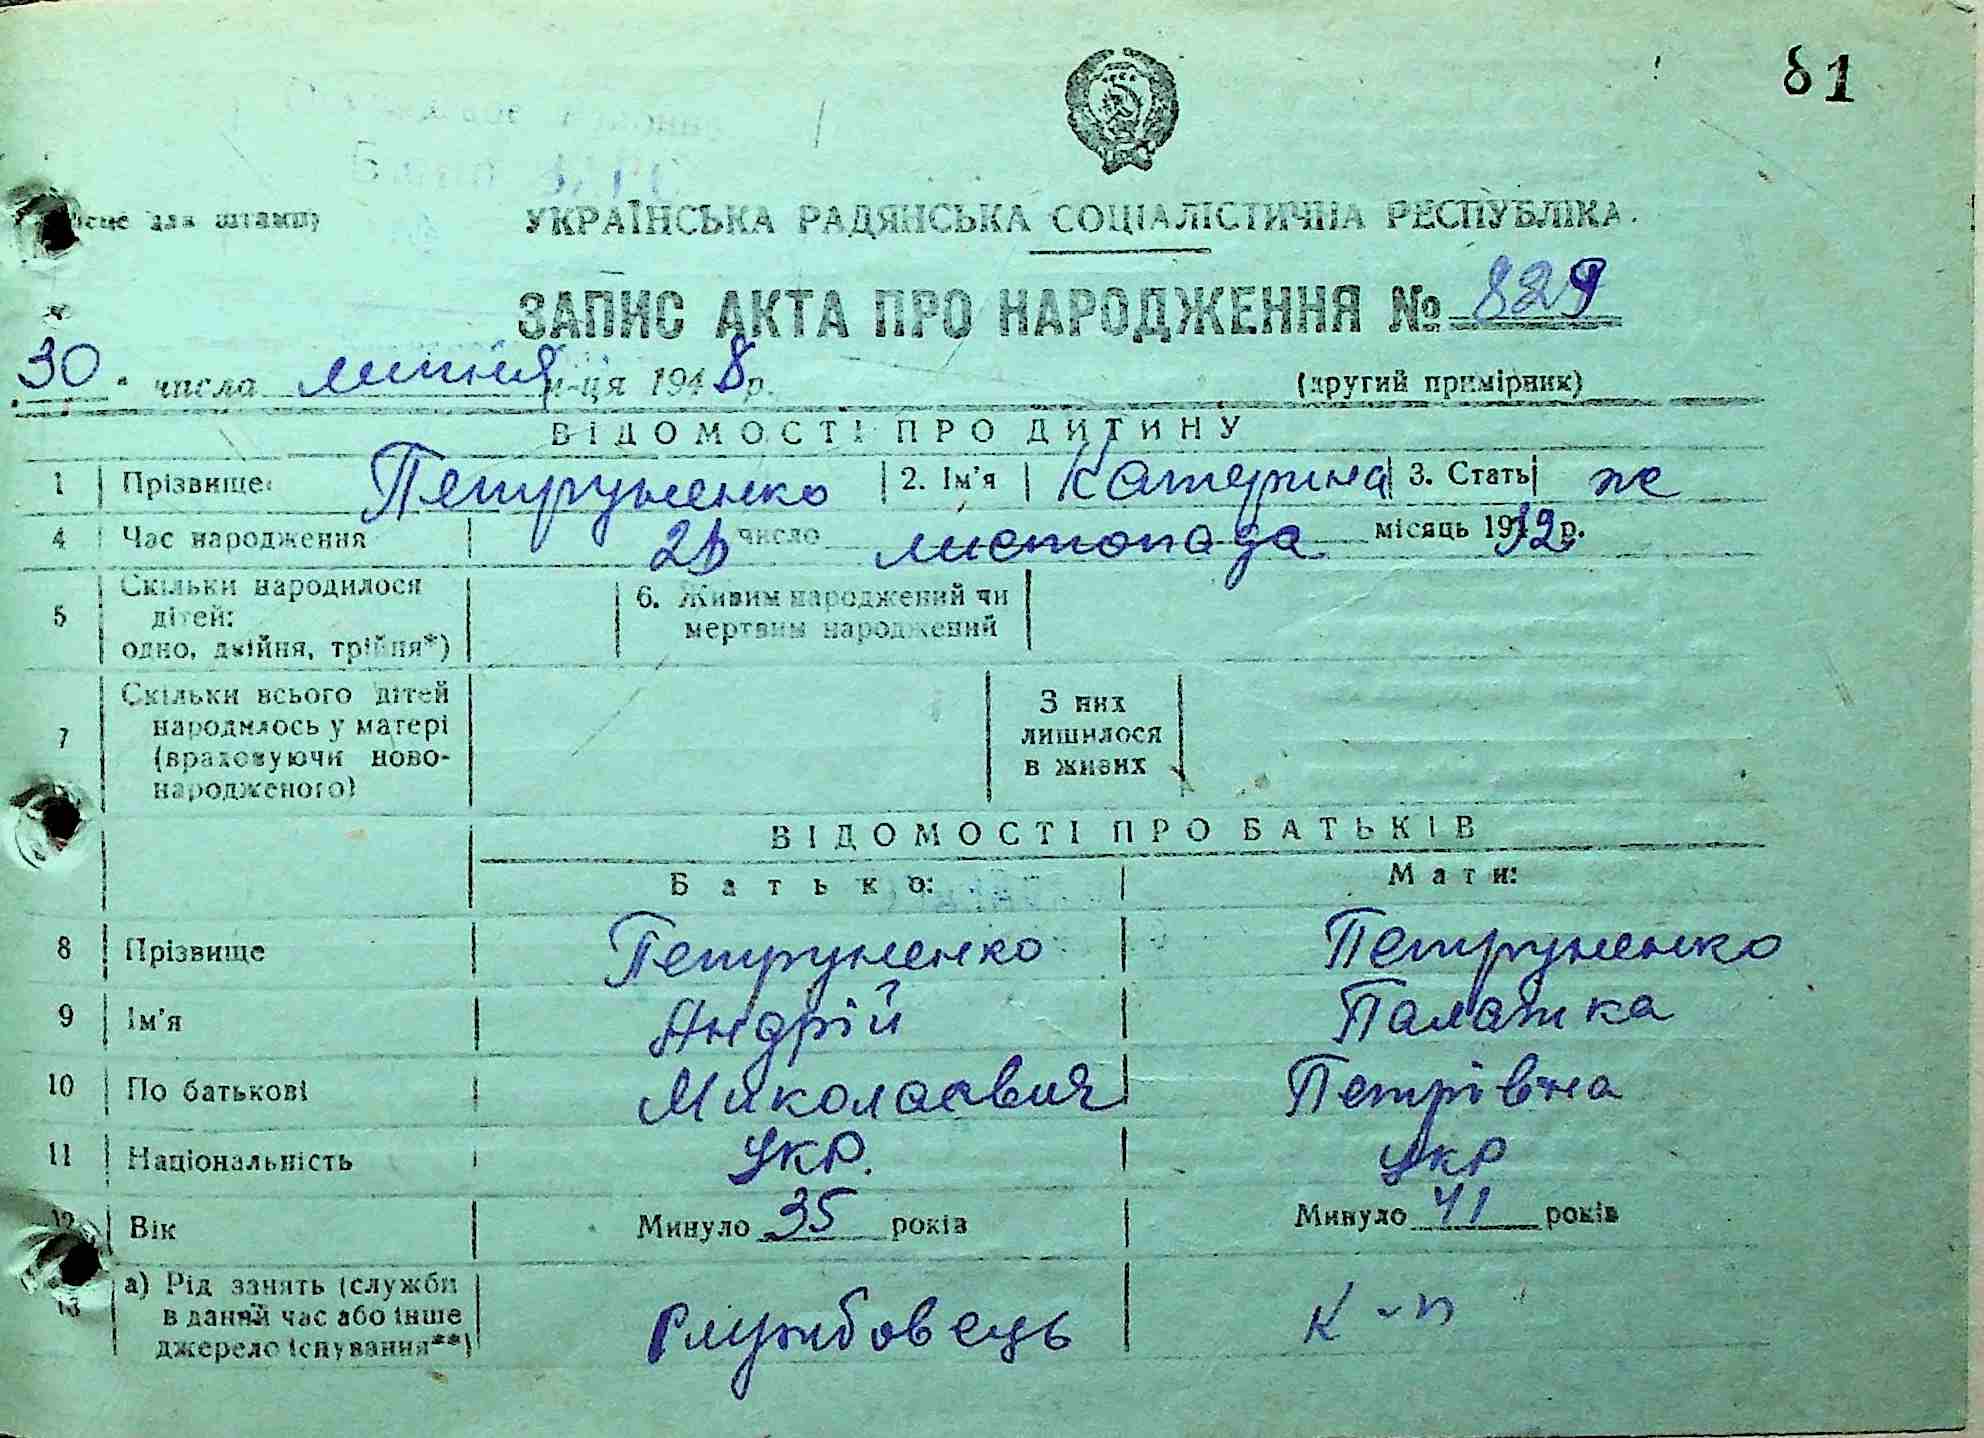 81
Місце для штампу
УКРАЇНСЬКА РАДЯНСЬКА СОЦІАЛІСТИЧНА РЕСПУБЛІКА.
ЗАПИС АКТА ПРО НАРОДЖЕННЯ № 829
30 " числа липня м-ця 1948 р.
(другий примірник)
ВІДОМОСТІ ПРО ДИТИНУ
1 Прізвище Петруненко 2. Ім'я Катерина 3. Стать же
4 Час народження число листопада місяць р.
5 Скільки народилося дітей: одно, двійня, трійня*)
6. Живим народжений чи мертвим народжений
7 Скільки всього дітей народилось у матері (враховуючи новонародженого)
З них лишилося в живих
ВІДОМОСТІ ПРО БАТЬКІВ
Батько: Мати:
8 Прізвище Петруненко Петруненко
9 Ім'я Андрій Палажка
10 По батькові Миколаєвич Петрівна
11 Національність Укр. Укр
12 Вік Минуло 35 років Минуло 41 років
13 а) Рід занять (служби в даний час або інше джерело існування**) Службовець к-п